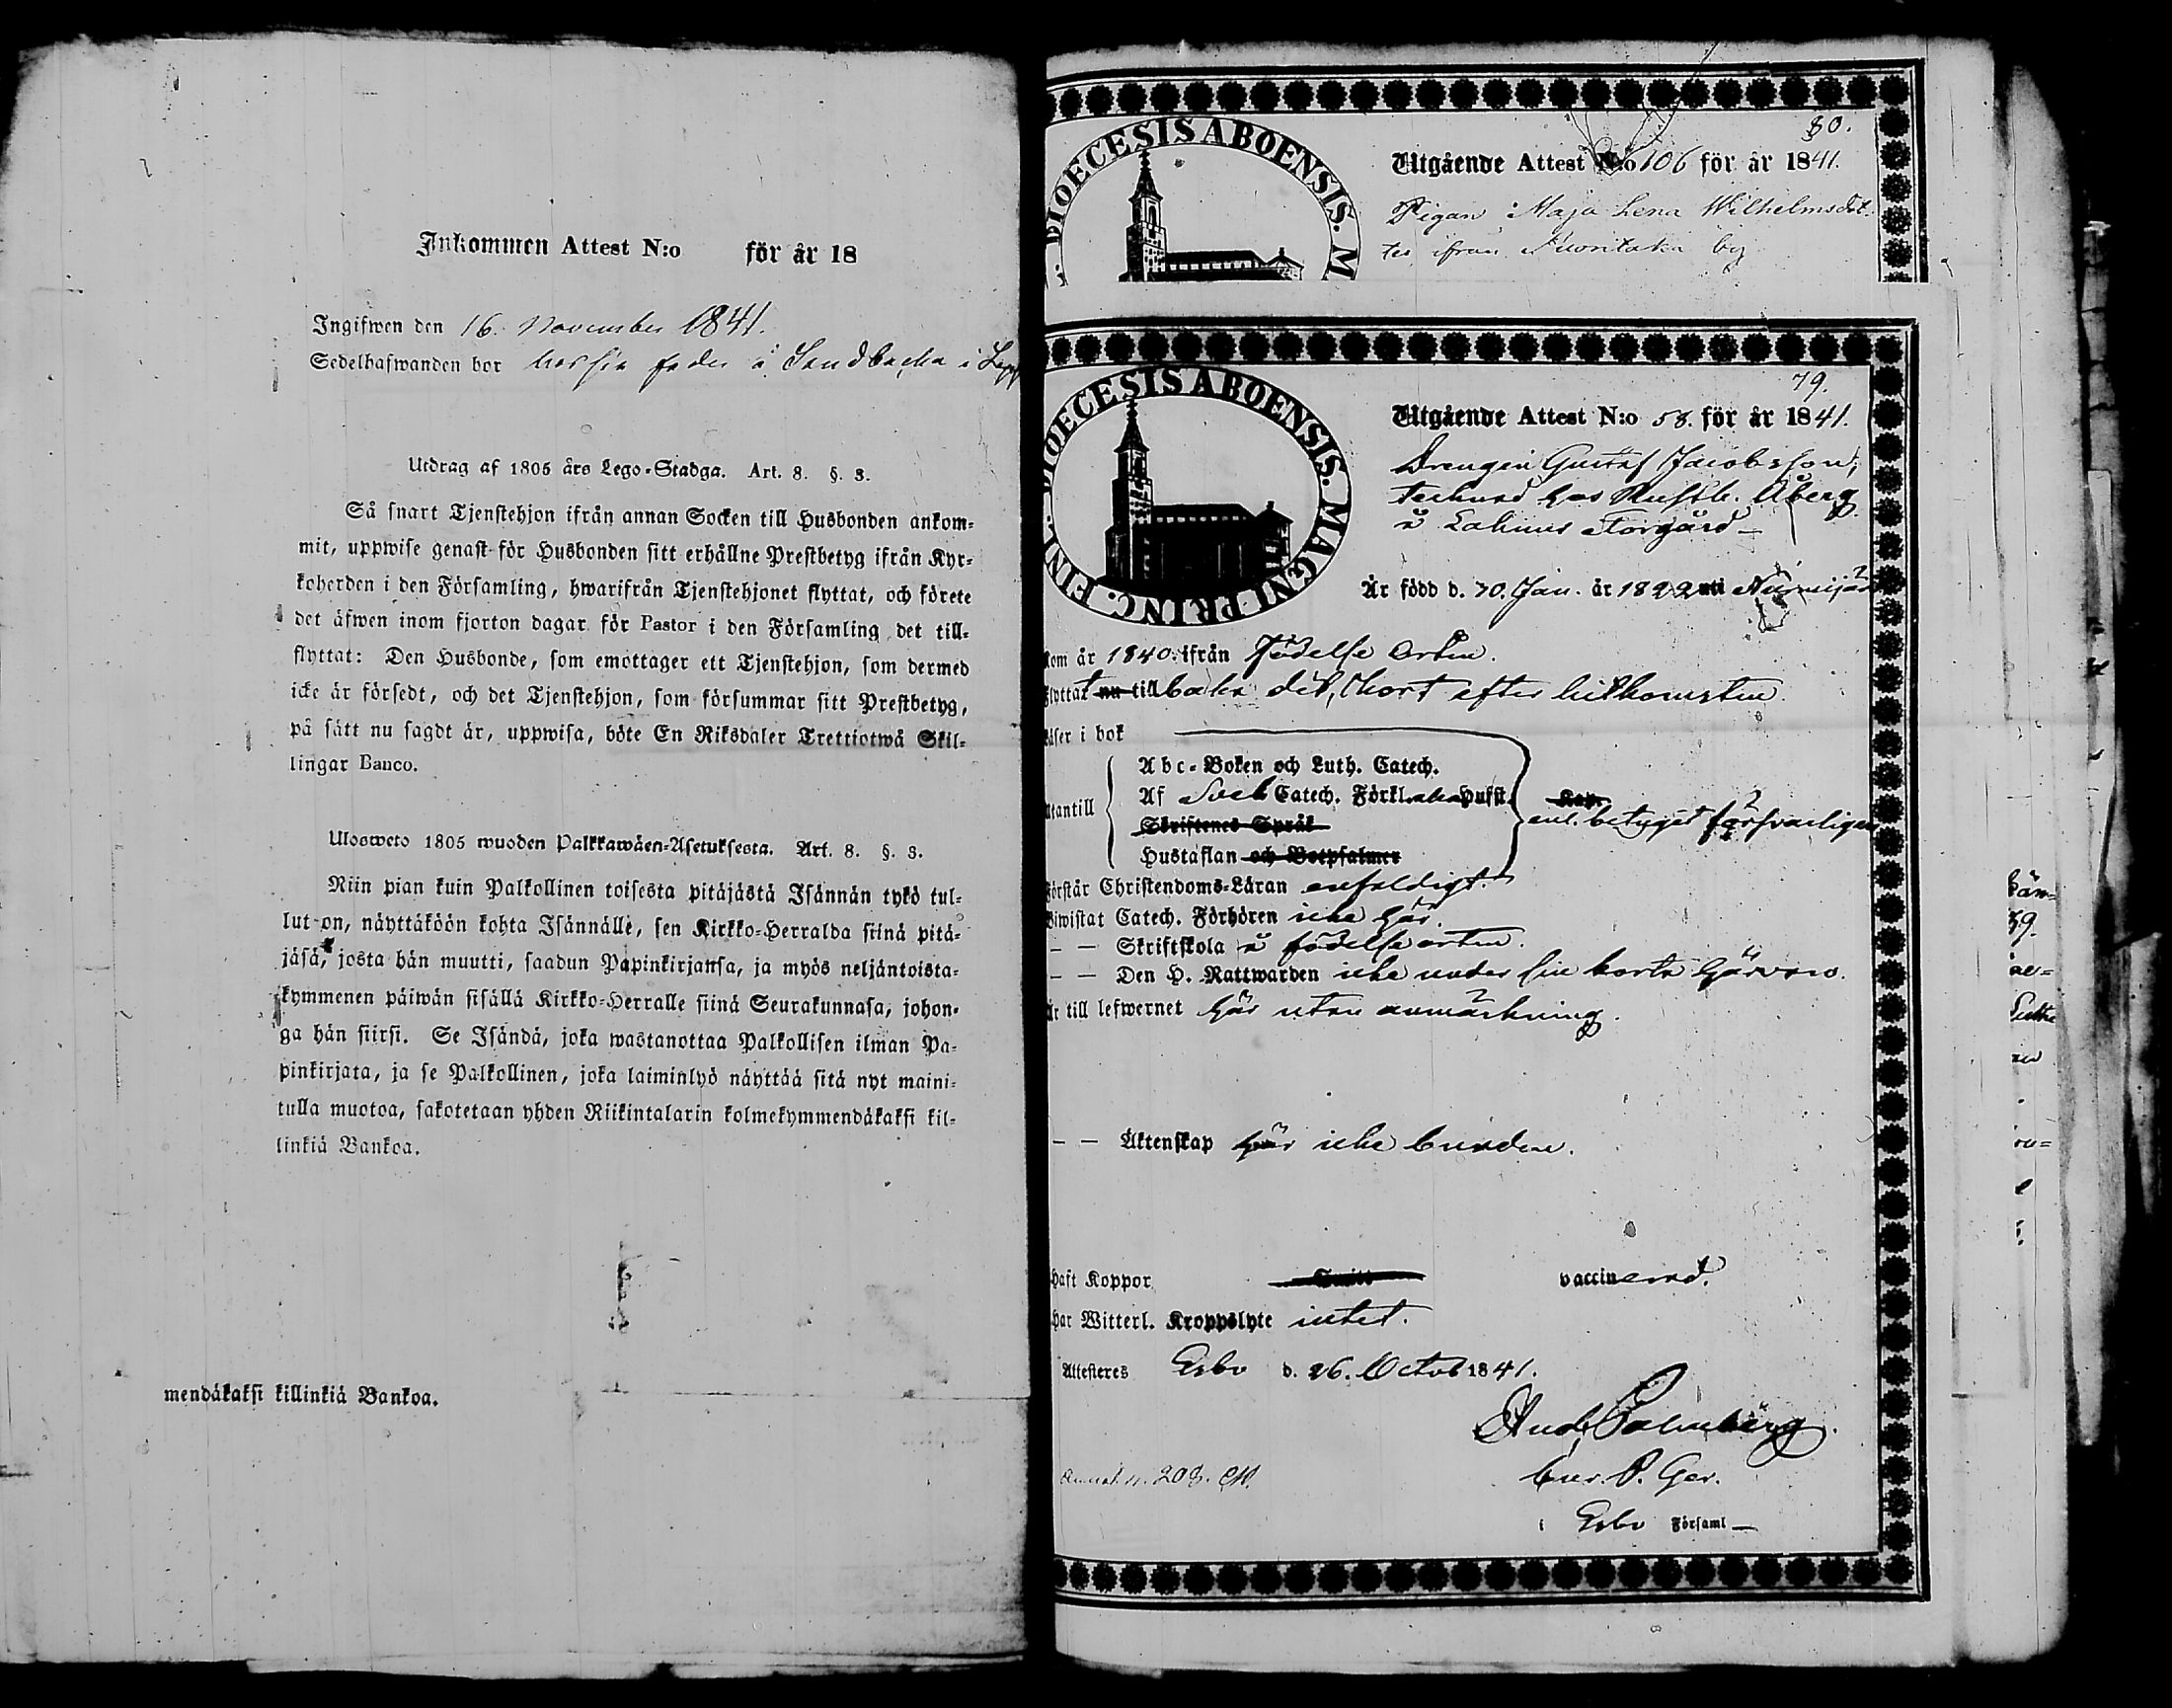 Inkommen Attest N:o för år 18
Ingifwen den 16. November 1841.
Sedelhafwanden bor hos sin fader å Sandbacka i
Utdrag af 1805 års Lego-Stadga. Art. 8. §. 3.
Så snart Tjenstehjon ifrån annan Socken till Husbonden ankom-
mit, uppwise genast för Husbonden sitt erhållne Prestbetyg ifrån Kyr-
koherden i den Församling, hwarifrån Tjenstehjonet flyttat, och förete
det äfwen inom fjorton dagar för Pastor i den Församling det till-
flyttat: Den Husbonde, som emottager ett Tjenstehjon, som dermed
icke är försedt, och det Tjenstehjon, som försummar sitt Prestbetyg,
på sätt nu sagdt är, uppwisa, böte En Riksdaler Trettiotwå Skil-
lingar Banco.
Ulosweto 1805 wuoden Palkkawäen-Asetuksesta. Art. 8. §. 3.
Niin pian kuin Palkollinen toisesta pitäjästä Isännän tykö tul-
lut on, näyttäköön kohta Isännälle, sen Kirkko-Herralda siinä pitä-
jäsä, josta hän muutti, saadun Papinkirjansa, ja myös neljäntoista-
kymmenen päiwän sisällä Kirkko-Herralle siinä Seurakunnasa, johon-
ga hän siirsi. Se Isändä, joka wastanottaa Palkollisen ilman Pa-
pinkirjata, ja se Palkollinen, joka laiminlyö näyttää sitä nyt maini-
tulla muotoa, sakotetaan yhden Riikintalarin kolmekymmendäkaksi kil-
linkiä Bankoa.
mendäkaksi killinkiä Bankoa.
80.
DIOECESIS ABOENSIS. M
Utgående Attest N:o 106 för år 1841.
Pigan Maja Lena Wilhelmsdot-
ter ifrån Nuoritaka by
79.
DIOECESIS ABOENSIS. MAGNI PRINC. FINL.
Utgående Attest N:o 58. för år 1841.
Drengen Gustaf Jacobsson,
hos Rusth. Åberg
å Lahnus Torgård
Är född d. 30. Jan. år 1822 uti Nurmijärvi
kom år 1840. ifrån födelse orten.
flyttat nu till baka dit, kort efter hitkomsten
Läser i bok
Abc-Boken och Luth. Catech.
Utantill Af Sveb Catech. Förkl. Hufst.
Skriftenes Språk
enl. betyget försvarligen
Hustaflan och Botpsalmer
Förstår Christendoms-Läran enfaldigt.
Biwistat Catech. Förhören icke här.
— — Skriftskola å födelseorten.
— — Den H. Nattwarden icke under sin korta härvaro.
Är till lefwernet här utan anmärkning.
— — Äktenskap här icke bunden.
Haft Koppor vaccinerad.
Har Witterl. Kroppslyte intet.
Attesteres Esbo d. 26. Octob 1841.
And. Palmberg.
i Esbo Församl —